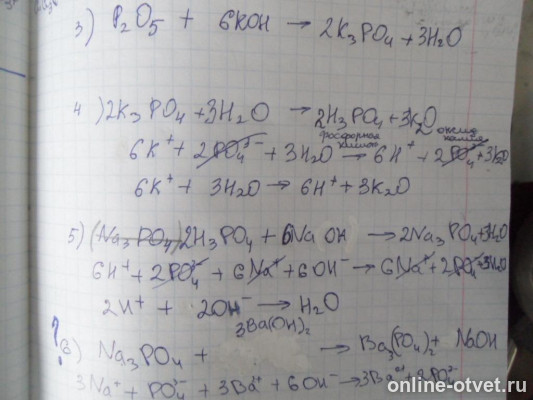 3) P₂O₅ + 6KOH → 2K₃PO₄ + 3H₂O
4) 2K₃PO₄ + 3H₂O → 2H₃PO₄ + 3K₂O
фосфорная кислота оксид калия
6K⁺ + 2PO₄³⁻ + 3H₂O → 6H⁺ + 2PO₄ + 3K₂O
6K⁺ + 3H₂O → 6H⁺ + 3K₂O
5) (Na₃PO₄) 2H₃PO₄ + 6NaOH → 2Na₃PO₄ + H₂O
6H⁺ + 2PO₄³⁻ + 6Na⁺ + 6OH⁻ → 6Na⁺ + 2PO₄³⁻ + H₂O
2H⁺ + 2OH⁻ → H₂O
3Ba(OH)₂
? 6) Na₃PO₄ + → Ba₃(PO₄)₂ + NaOH
3Na⁺ + PO₄³⁻ + 3Ba²⁺ + 6OH⁻ → 3Ba²⁺ + 2PO₄³⁻
online-otvet.ru